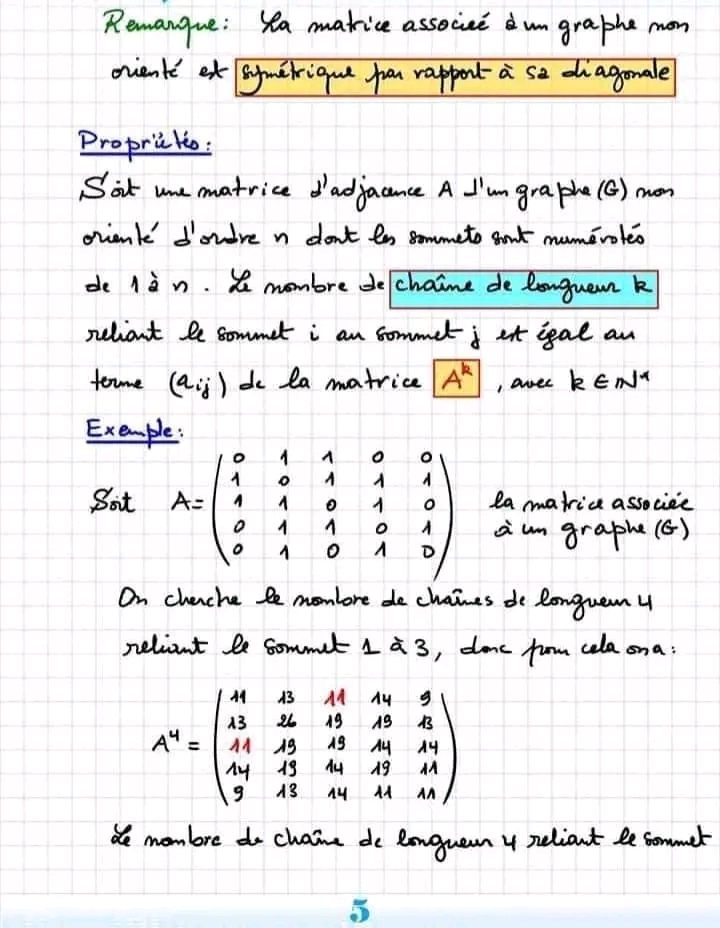 Remarque: La matrice associeé à un graphe non
orienté est symétrique par rapport à sa diagonale
Propriétés:
Soit une matrice d'adjacence A d'un graphe (G) non
orienté d'ordre n dont les sommets sont numérotés
de 1 à n. Le nombre de chaîne de longueur k
reliant le sommet i au sommet j est égal au
terme (aij) de la matrice A^k, avec k ∈ ℕ*
Exemple:
0 1 1 0 0
1 0 1 1 1
Soit A= 1 1 0 1 0 la matrice associée
0 1 1 0 1 à un graphe (G)
0 1 0 1 0
On cherche le nombre de chaînes de longueur 4
reliant le sommet 1 à 3, donc pour cela on a:
11 13 11 14 9
13 26 19 19 13
A^4 = 11 19 19 14 14
14 19 14 19 11
9 13 14 11 11
Le nombre de chaîne de longueur 4 reliant le sommet
5